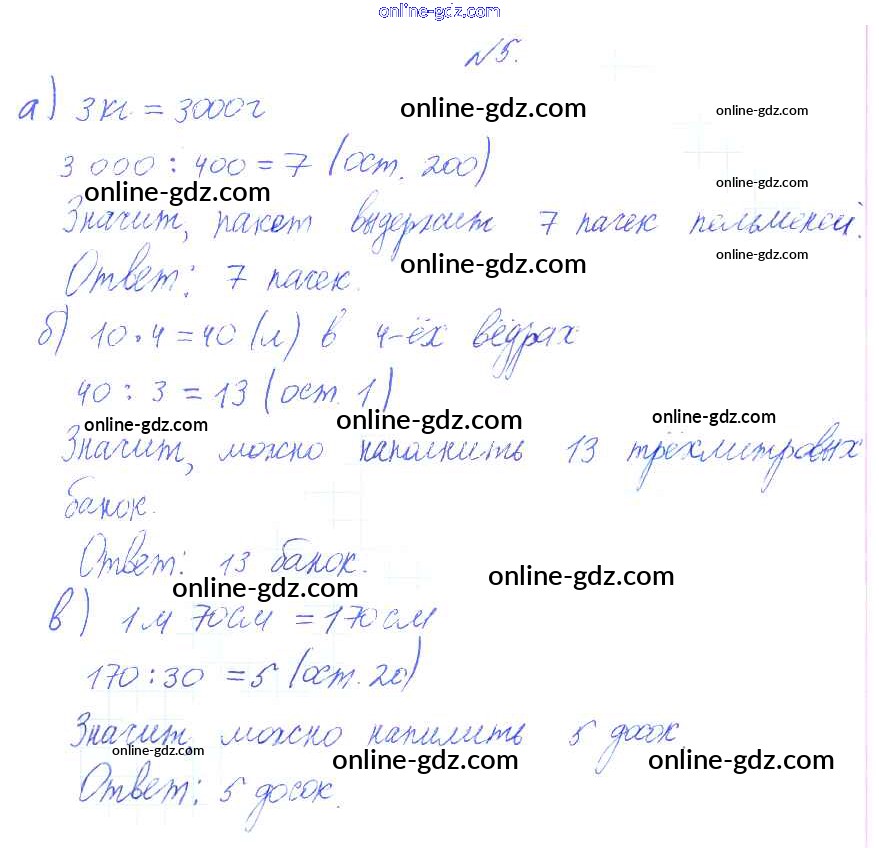 online-gdz.com
№5.
а) 3кг = 3000г
online-gdz.com online-gdz.com
3 000 : 400 = 7 (ост. 200)
online-gdz.com online-gdz.com
Значит, пакет выдержит 7 пачек пельменей.
online-gdz.com online-gdz.com
Ответ: 7 пачек.
б) 10 · 4 = 40 (л) в 4-ёх вёдрах
40 : 3 = 13 (ост. 1)
online-gdz.com online-gdz.com online-gdz.com
Значит, можно наполнить 13 трёхлитровых
банок.
Ответ: 13 банок.
online-gdz.com online-gdz.com
в) 1м 70см = 170см
170 : 30 = 5 (ост. 20)
Значит, можно напилить 5 досок
online-gdz.com online-gdz.com online-gdz.com
Ответ: 5 досок.